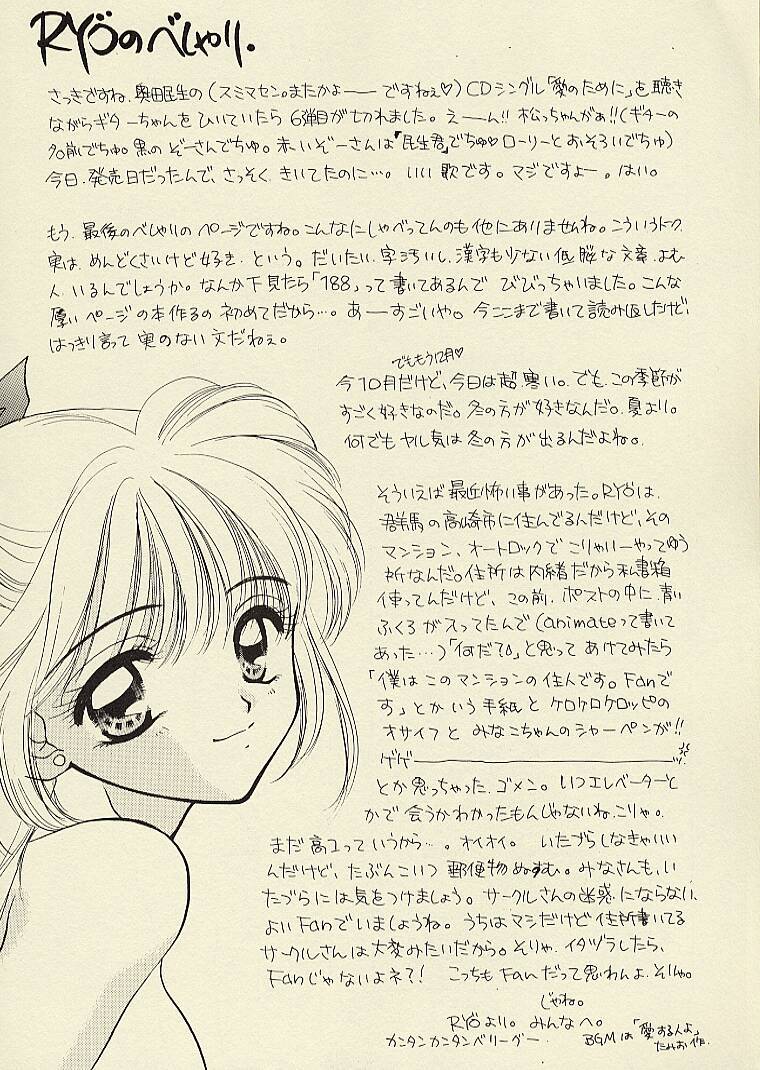 RYÖのべしゃり.
さっきですね、奥田民生の(スミマセン。またかよー――ですねぇ♡)CDシングル「愛のために」を聴き
ながらギターちゃんをひいていたら6弾目が切れました。えーーん!!松っちゃんがぁ!!(ギターの
名前でちゅ。黒のぞーさんでちゅ。赤いぞーさんは「民生君」でちゅ♡ローリーとおそろいでちゅ)
今日、発売日だったんで、さっそくきいてたのに…。いい歌です。マジですよー。はい。
もう、最後のべしゃりのページですね。こんなにしゃべってんのも他にありませんね。こういうトーク
実は、めんどくさいけど好き、という。だいたい、字汚いし、漢字も少ない低脳な文章、よむ
人、いるんでしょうか。なんか下見たら「188」って書いてあるんで びびっちゃいました。こんな
厚いページの本作るの初めてだから…。あーーすごいや。今ここまで書いて読み返したけど、
はっきり言って実のない文だねぇ。
でももう12月♡
今10月だけど、今日は超寒い。でも、この季節が
すごく好きなのだ。冬の方が好きなんだ。夏より。
何でもヤル気は冬の方が出るんだよね。
そういえば最近怖い事があった。RYÖは、
群馬の高崎市に住んでるんだけど、その
マンション、オートロックでこりゃいーやってゆう
所なんだ。住所は内緒だから私書箱
使ってんだけど、この前、ポストの中に青い
ふくろが入ってたんで(animateって書いて
あった…)「何だ?」と思ってあけてみたら
「僕はこのマンションの住人です。Fanで
す」とかいう手紙とケロケロケロッピの
オサイフとみなこちゃんのシャーペンが!!
ゲゲ――――――ッ
とか思っちゃった、ゴメン。いつエレベーターと
かで会うかわかったもんじゃないね、こりゃ。
まだ高1っていうから…。オイオイ。いたづらしなきゃいい
んだけど、たぶんこいつ郵便物ぬすむ。みなさんも、い
たづらには気をつけましょう。サークルさんの迷惑にならない、
よいFanでいましょうね。うちはマシだけど住所書いてる
サークルさんは大変みたいだから。そりゃ、イタヅラしたら、
Fanじゃないよネ?! こっちもFanだって思わんよ、そりゃ。
じゃね。
RYÖより。みんなへ。
カンタンカンタンベリーグー.
BGMは「愛する人よ」
たみお作.